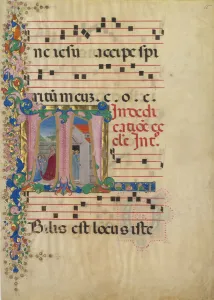 ne iesu accipe spi
ritū meuz. c. o. c.
In dedi
catiōe ec
cle Int.
T
Bilis est locus iste